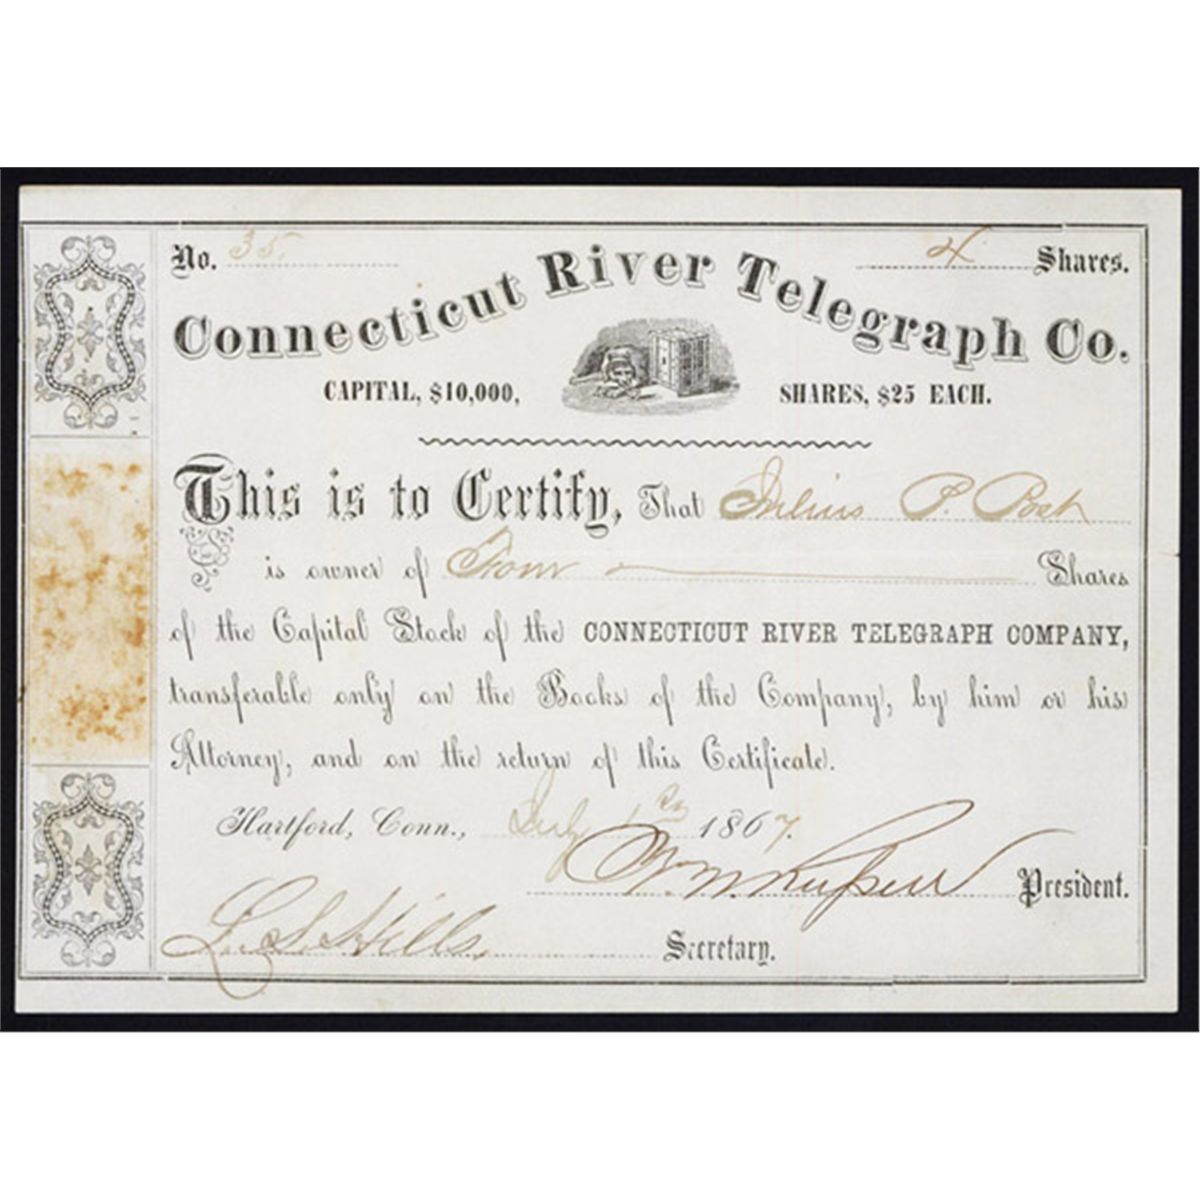 No. 35. 4 Shares.
Connecticut River Telegraph Co.
CAPITAL, $10,000, SHARES, $25 EACH.
This is to Certify, That Julius P. Post
is owner of Four Shares
of the Capital Stock of the CONNECTICUT RIVER TELEGRAPH COMPANY,
transferable only on the Books of the Company, by him or his
Attorney, and on the return of this Certificate.
Hartford, Conn., July 1st 1867.
Wm. Russell President.
L. S. Hills Secretary.